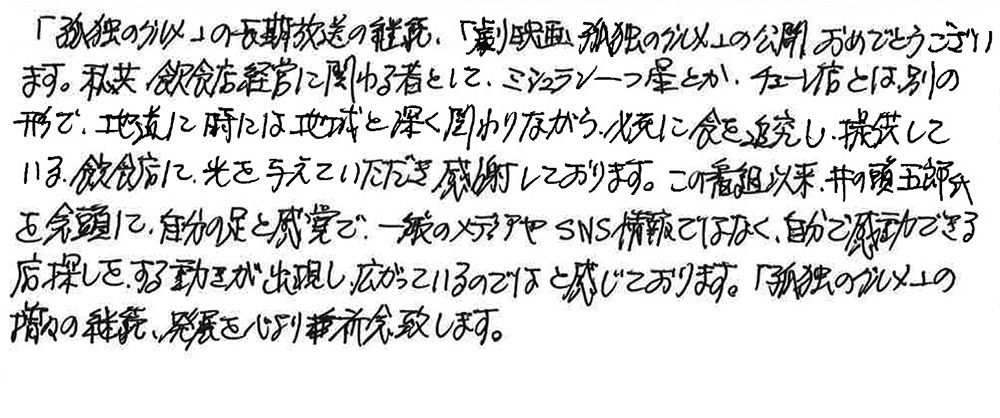 「孤独のグルメ」の長期放送の継続、「劇映画 孤独のグルメ」の公開おめでとうござい
ます。私共 飲食店経営に関わる者として、ミシュラン一つ星とか、チェーン店とは、別の
形で、地道に時には地域と深く関わりながら、必死に食を追究し、提供して
いる、飲食店に、光を与えていただき感謝しております。この番組以来、井の頭五郎氏
を念頭に、自分の足と感覚で、一般のメディアやSNS情報ではなく、自分で感動できる
店探しをする動きが出現し、広がっているのではと感じております。「孤独のグルメ」の
増々の継続、発展を心より祈念致します。